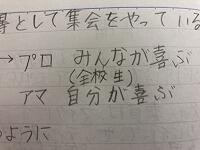 として集会をやっている
→プロ みんなが喜ぶ
(全校生)
アマ 自分が喜ぶ
ように